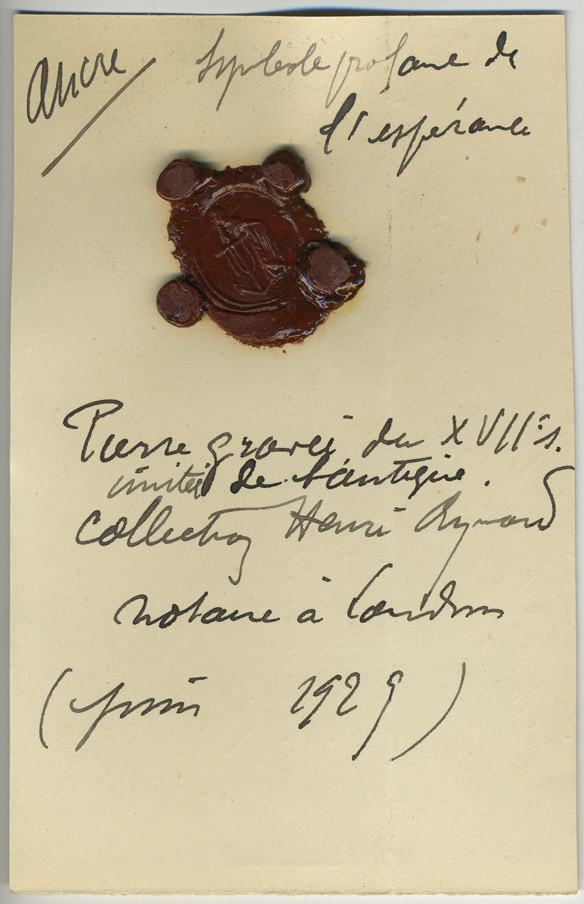 Ancre Symbole profane de
l'espérance
Pierre gravée du XVIIe s.
imitée de l'antique.
Collection Henri
notaire à Loudun
(juin 1929)